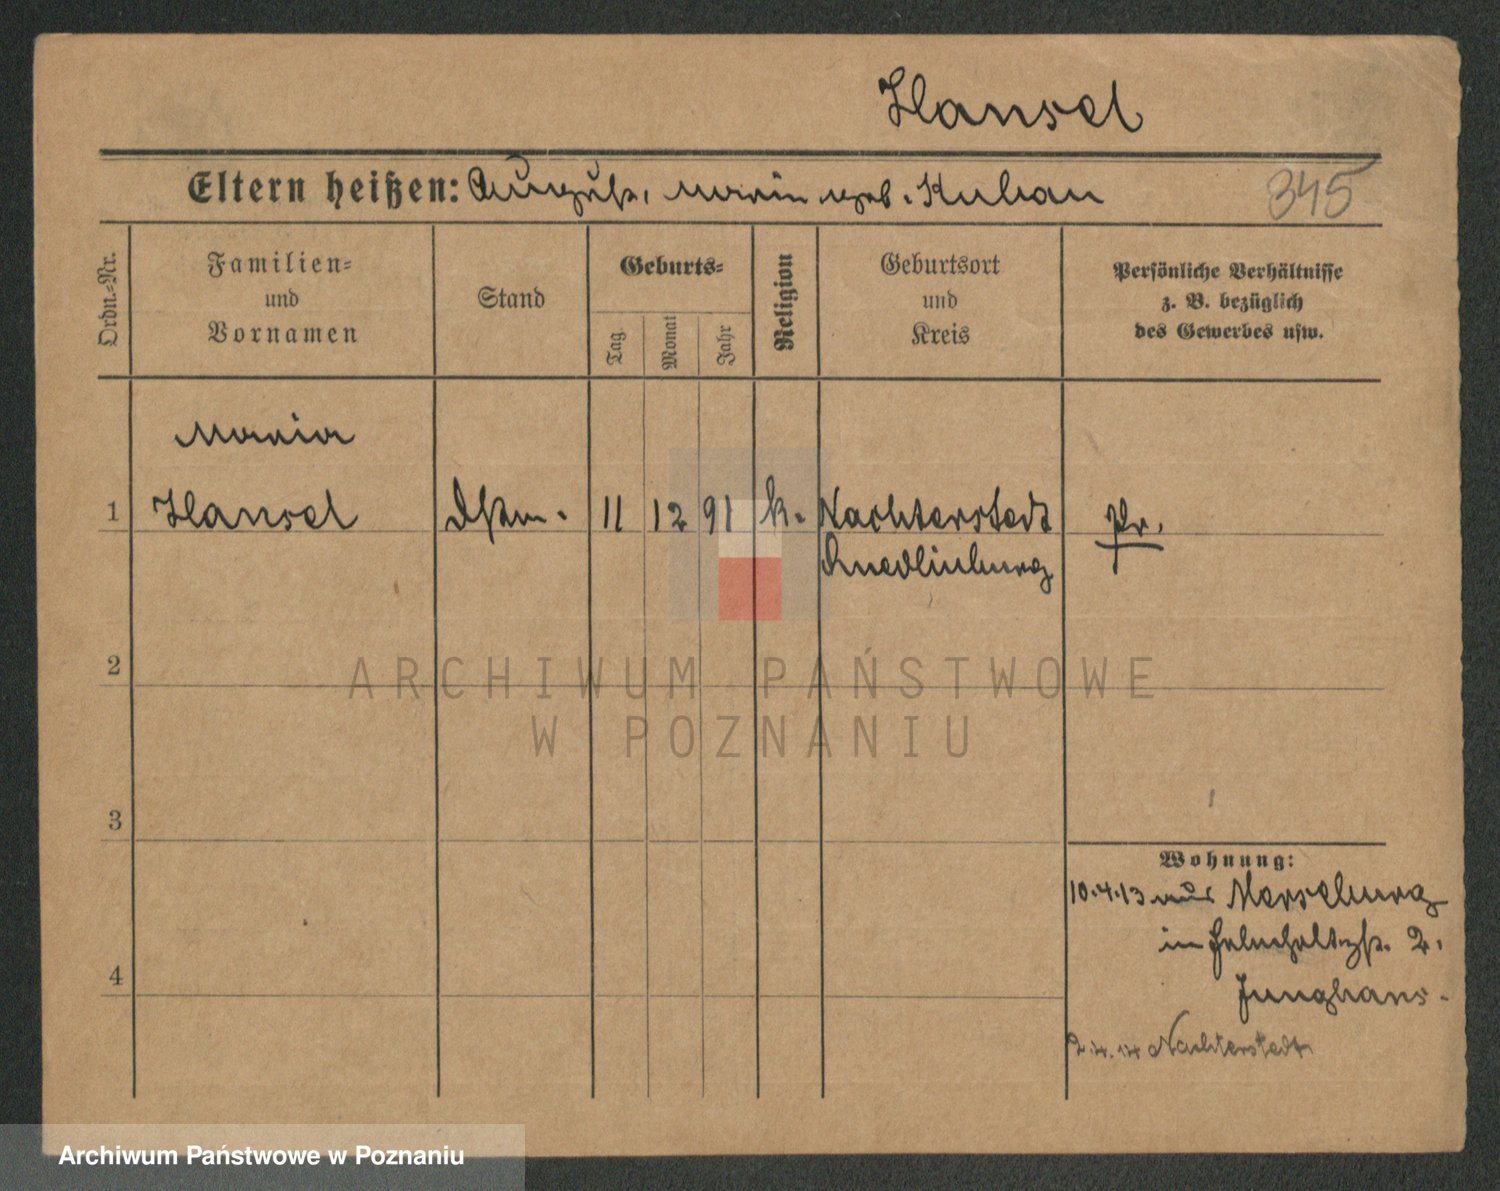 Hansel
Eltern heißen: August, Marie geb. Kuban
345
Ordn.-Nr.
Familien-
und
Vornamen
Stand
Geburts-
Tag
Monat
Jahr
Religion
Geburtsort
und
Kreis
Persönliche Verhältnisse
z. B. bezüglich
des Gewerbes usw.
Maria
1 Hansel Dstm. 11 12 91 k. Nachterstedt Pr.
Quedlinburg
2
ARCHIWUM PAŃSTWOWE
W POZNANIU
3
Wohnung:
10.4.13 aus Merseburg
in 2.
4
Junghans.
2.4.14 Nachterstedt
Archiwum Państwowe w Poznaniu